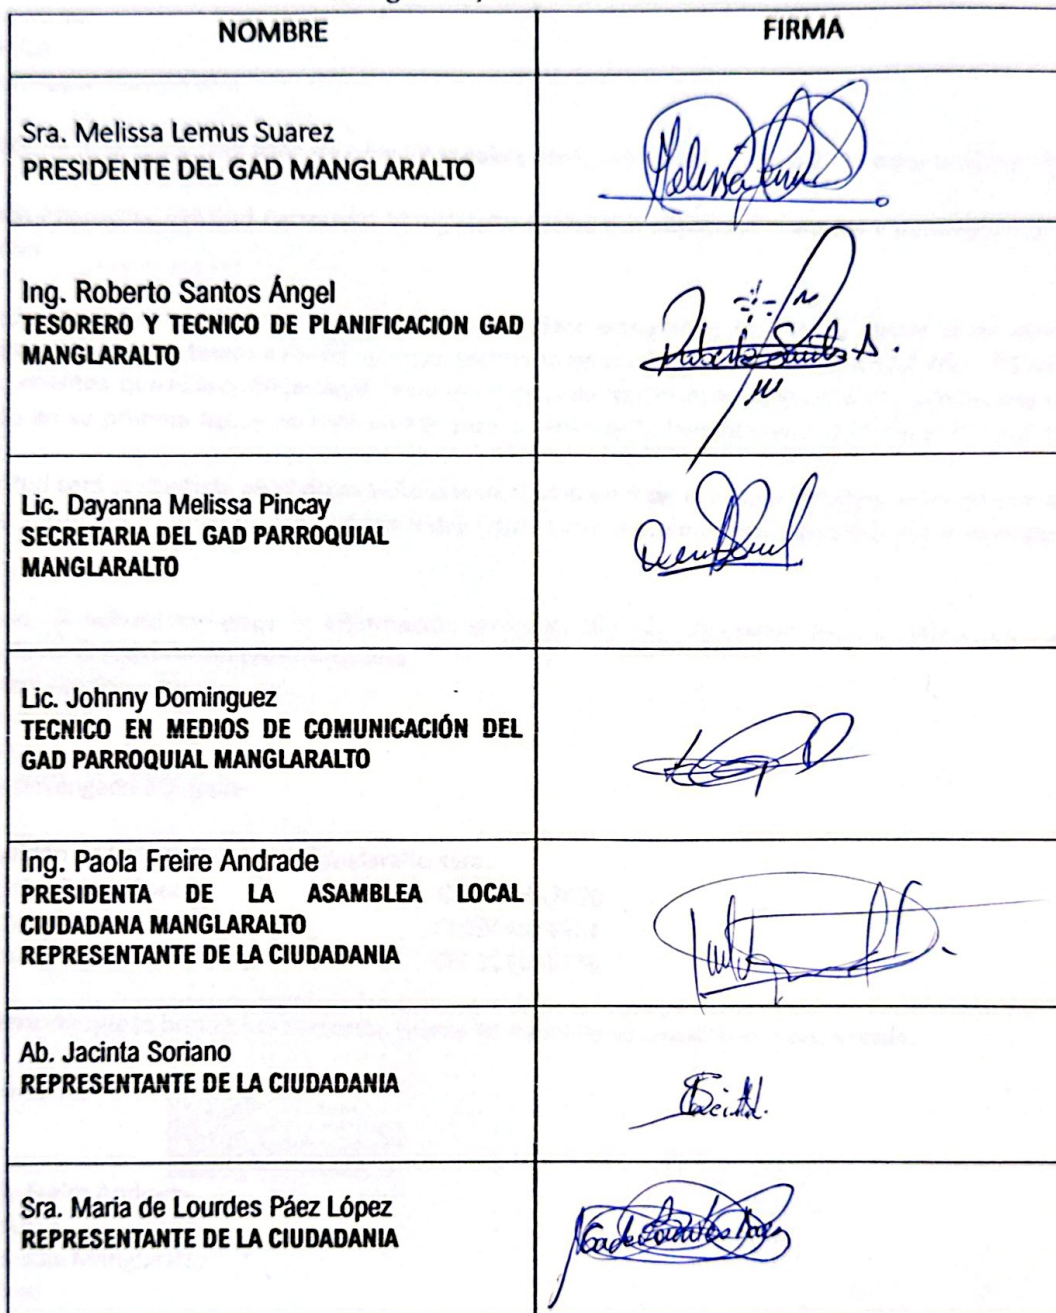 NOMBRE
FIRMA
Sra. Melissa Lemus Suarez
PRESIDENTE DEL GAD MANGLARALTO
Ing. Roberto Santos Ángel
TESORERO Y TECNICO DE PLANIFICACION GAD
MANGLARALTO
Roberto Santos A.
Lic. Dayanna Melissa Pincay
SECRETARIA DEL GAD PARROQUIAL
MANGLARALTO
Lic. Johnny Dominguez
TECNICO EN MEDIOS DE COMUNICACIÓN DEL
GAD PARROQUIAL MANGLARALTO
Ing. Paola Freire Andrade
PRESIDENTA DE LA ASAMBLEA LOCAL
CIUDADANA MANGLARALTO
REPRESENTANTE DE LA CIUDADANIA
Ab. Jacinta Soriano
REPRESENTANTE DE LA CIUDADANIA
Sra. Maria de Lourdes Páez López
REPRESENTANTE DE LA CIUDADANIA